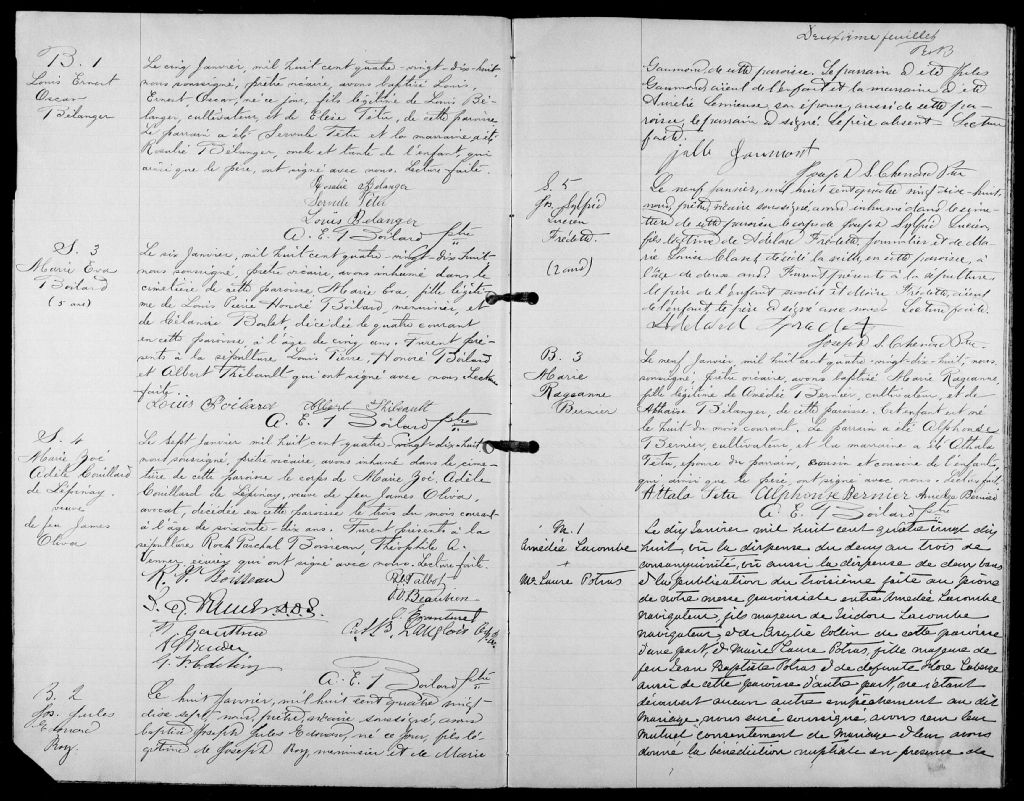 B. 1
Louis Ernest
Oscar
Bélanger
Le cinq Janvier, mil huit cent quatre-vingt-dix-huit,
nous soussigné, prêtre vicaire, avons baptisé Louis,
Ernest Oscar, né ce jour, fils légitime de Louis Bé-
langer, cultivateur, et de Elise Tetu, de cette paroisse.
Le parrain a été Servule Tetu et la marraine a été
Rosalie Bélanger, oncle et tante de l'enfant, qui
ainsi que le père, ont signé avec nous. Lecture faite.
Rosalie Belanger
Servule Tétu
Louis Belanger
A. E. T Boilard ptre
S. 3
Marie Eva
Boilard
(5 ans)
Le six Janvier, mil huit cent quatre-vingt-dix-huit
nous soussigné, prêtre vicaire, avons inhumé dans le
cimetière de cette paroisse Marie Eva, fille légiti-
me de Louis Pierre Honoré Boilard, menuisier, et
de Célanire Boulet, décédée le quatre courant
en cette paroisse, à l'âge de cinq ans. Furent pré-
sents à la sépulture Louis Pierre, Honoré Boilard
et Albert Thibault qui ont signé avec nous Lecture
faite.
Louis Boilard Albert Thibault
A. E. T Boilard ptre
S. 4
Marie Zoé
Adèle Couillard
de Lépinay
veuve
de feu James
Oliva
Le sept Janvier mil huit cent quatre-vingt-dix-huit,
nous soussigné, prêtre vicaire, avons inhumé dans le cime-
tière de cette paroisse le corps de Marie Zoé, Adèle
Couillard de Lépinay, veuve de feu James Oliva,
avocat, décédée en cette paroisse le trois du mois courant
à l'âge de soixante-dix ans. Furent présents à la
sépulture Roch Paschal Boisseau, Théophile A.
Venner écuyers qui ont signé avec nous. Lecture faite.
R. P. Boisseau
Talbot
Beaubien
Langlois
A. E. T Boilard ptre
B. 2
Jos. Jules
Edmond
Roy.
Le huit Janvier, mil huit cent quatre vingt
dix sept, nous, prêtre, vicaire soussigné, avons
baptisé Joseph Jules Edmond, né ce jour, fils lé-
gitime de Joseph Roy, menuisier et de Marie
Deuxième feuillet
Gaumond, de cette paroisse. Le parrain a été Jules
Gaumond, aïeul de l'enfant et la marraine a été
Aurélie Lemieux son épouse, aussi de cette pa-
roisse, le parrain a signé. Le père absent - Lecture
faite.
Joseph S. Chenard Ptre
S. 5
Jos. Sylfrid
Lucien
Frédette.
(2 ans)
Le neuf janvier, mil huit cent quatre vingt dix-huit.
nous, prêtre, vicaire soussigné, avons inhumé dans le cime-
tière de cette paroisse le corps de Joseph Sylfrid Lucien,
fils légitime de Adélar Frédette, journalier et de Ma-
rie Louise décédé la veille en cette paroisse, à
l'âge de deux ans. Furent présents à la sépulture
le père de l'enfant susdit et Frédette, aïeul
de l'enfant, le père a signé avec nous Lecture faite.
Joseph S. Chenard Ptre.
B. 3
Marie
Bernier
Le neuf Janvier, mil huit cent quatre-vingt-dix-huit, nous,
soussigné, prêtre vicaire, avons baptisé Marie
fille légitime de Amédée Bernier, cultivateur, et de
Bélanger, de cette paroisse. Cet enfant est né
le huit du mois courant. Le parrain a été Alphonse
Bernier, cultivateur, et la marraine a été Athala
Tetu, épouse du parrain, cousin et cousine de l'enfant,
qui ainsi que le père, ont signé avec nous. Lecture faite.
Attala Tetu Alphonse Bernier Amédée Bernier
A. E. T Boilard ptre
M. 1
Amédée Lacombe
+
Me. Laure Potras
Le dix Janvier mil huit cent quatre vingt dix
huit, vu la dispense du deux au trois de
consanguinité, vu aussi la dispense de deux bans
et la publication du troisième faite au prône
de notre messe paroissiale entre Amédée Lacombe
navigateur, fils majeur de Isidore Lacombe
navigateur, et de Collin de cette paroisse
d'une part, et Marie Laure Potras, fille majeure de
feu Jean Baptiste Potras et de defunte Flore Laberge
aussi de cette paroisse d'autre part, ne s'étant
découvert aucun autre empêchement au dit
Mariage, nous curé soussigné, avons reçu leur
mutuel consentement de Mariage et leur avons
donné la bénédiction nuptiale en présence de